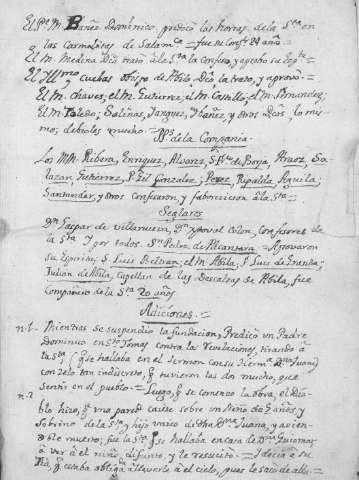 El P.e M. Bañez Dominico, predicó las honras de la S.ta en
las Carmelitas de Salam.ca = fue su Conf.r 8 años =
El M. Medina Dco trató à la S.ta la confesó, y aprobó su espíritu =
El Ill.mo Cuebas Obispo de Abila Dco la trató, y aprovó =
El M. Chaves, el M. Gutierrez, el M. Castillo, el M. Fernandez,
El M. Toledo, Salinas, Ianguez, Ybañez, y otros Dcos, lo mis
mo, debioles mucho = PP.s de la Compania.
Los MM. Ribera, Enriquez, Alvarez, S. F.co de Borja, Araoz, Sa
lazar, Gutierrez, P. Gil Gonzalez, Perez, Ripalda, Aguila,
Santander, y otros confesaron, y faborecieron à la S.ta
Seglares
D.n Gaspar de Villanueva, D. Colon, confesores de
la S.ta y por todos. S.n Pedro de Alcantara = Aprovaron
su Espiritu, S. Luis Beltran, el M. Abila, F. Luis de Granada;
Julian de Abila, Capellan de las Descalzas de Abila, fue
Compañero de la S.ta 20 años
Adiciones. =
n.1. Mientras se suspendio la fundacion, Predicó un Padre
Dominico en S.to Tomas contra las revelaciones, tirando à
la S.ta, (q. se hallaba en el Sermon con su Herm.a D.na Juana)
con zelo tan indiscreto, q. tuvieron las dos mucho, que
sentir en el pueblo = Luego, q. se comenzo la obra, el Dia
n.2 blo hizo, q. una pared caiese sobre un Niño de años y
Sobrino de la S.ta y hijo unico de D.na Juana, y avien
dole muerto; fue la S.ta q. se hallaba en casa de D.na Guiomar
à ver à el niño difunto, y le resucitó = I decia à su
Tia, q. estaba obligada à llevarle à el cielo, pues le sacó de alla =